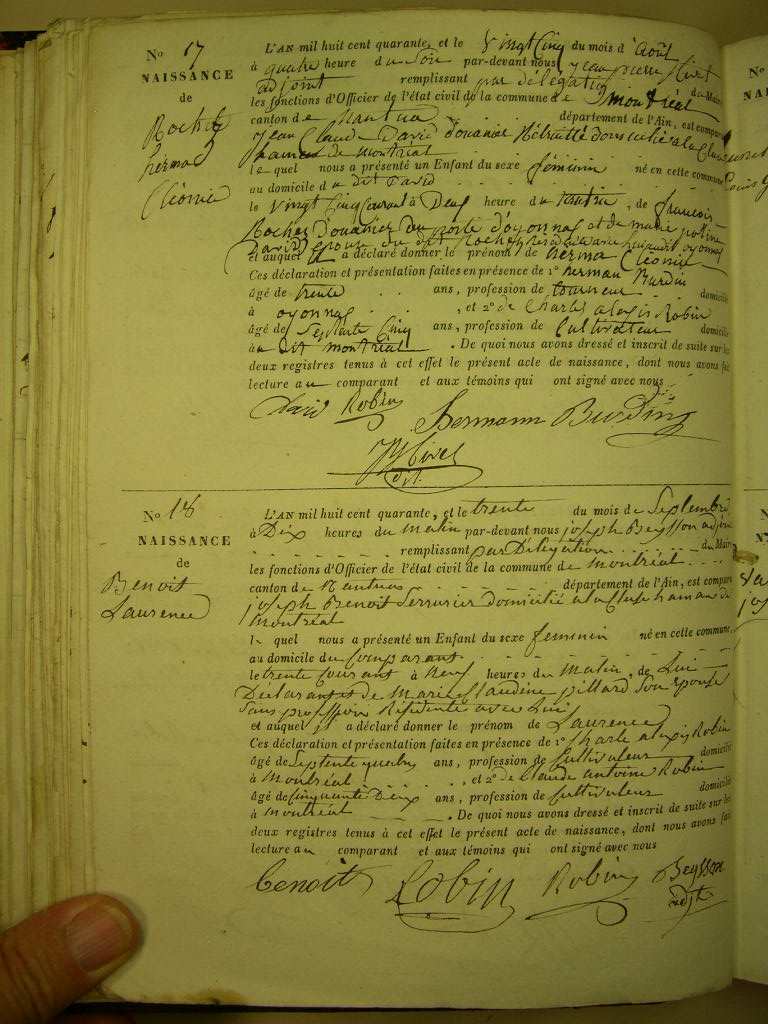 No 17
NAISSANCE
de
Rochet
herma
Cléonice
L'AN mil huit cent quarante, et le Vingt Cinq du mois d'Août
à quatre heure du Soir par-devant nous jean pierre
adjoint remplissant par délégation
les fonctions d'Officier de l'état civil de la commune de montréal du Maire
canton de Nantua département de l'Ain, est comparu
Jean Claude David douanier Retraité domicilié à la Cluse
hameau de montréal
le quel nous a présenté un Enfant du sexe féminin né en cette commune
au domicile du dit David
le Vingt Cinq Courant à Deux heure du matin, de françois
Rochet Douanier du poste d'oyonnax et de marie
David Epouse du dit Rochet
et auquel il a déclaré donner le prénom de herma Cléonice
Ces déclaration et présentation faites en présence de 1° herman Burdin
âgé de trente ans, profession de tourneur domicilié
à oyonnax, et 2° de Charles alexis Robin
âgé de Septente Cinq ans, profession de Cultivateur domicilié
au dit montréal. De quoi nous avons dressé et inscrit de suite sur les
deux registres tenus à cet effet le présent acte de naissance, dont nous avons fait
lecture au comparant et aux témoins qui ont signé avec nous
David Robin Hermann Burdin
adjt.
No 18
NAISSANCE
de
Benoit
Laurence
L'AN mil huit cent quarante, et le trente du mois de Septembre
à Dix heures du Matin par-devant nous joseph Beysson adjoint
remplissant par Délégation du Maire
les fonctions d'Officier de l'état civil de la commune de Montréal
canton de Nantua département de l'Ain, est comparu
joseph Benoit Serrurier domicilié à la Cluse hameau de
Montréal
le quel nous a présenté un Enfant du sexe feminin né en cette commune
au domicile du Comparant
le trente Courant à Neuf heures du Matin, de Lui
Déclarant et de Marie Claudine pillard Son Epouse
Sans profession Résidente avec Lui
et auquel il a déclaré donner le prénom de Laurence
Ces déclaration et présentation faites en présence de 1° Charle alexis Robin
âgé de Septente quatre ans, profession de Cultivateur domicilié
à Montréal, et 2° de Claude antoine Robin
âgé de Cinquante Deux ans, profession de Cultivateur domicilié
à Montréal. De quoi nous avons dressé et inscrit de suite sur les
deux registres tenus à cet effet le présent acte de naissance, dont nous avons fait
lecture au comparant et aux témoins qui ont signé avec nous
benoit Robin Robin Beysson
adjt